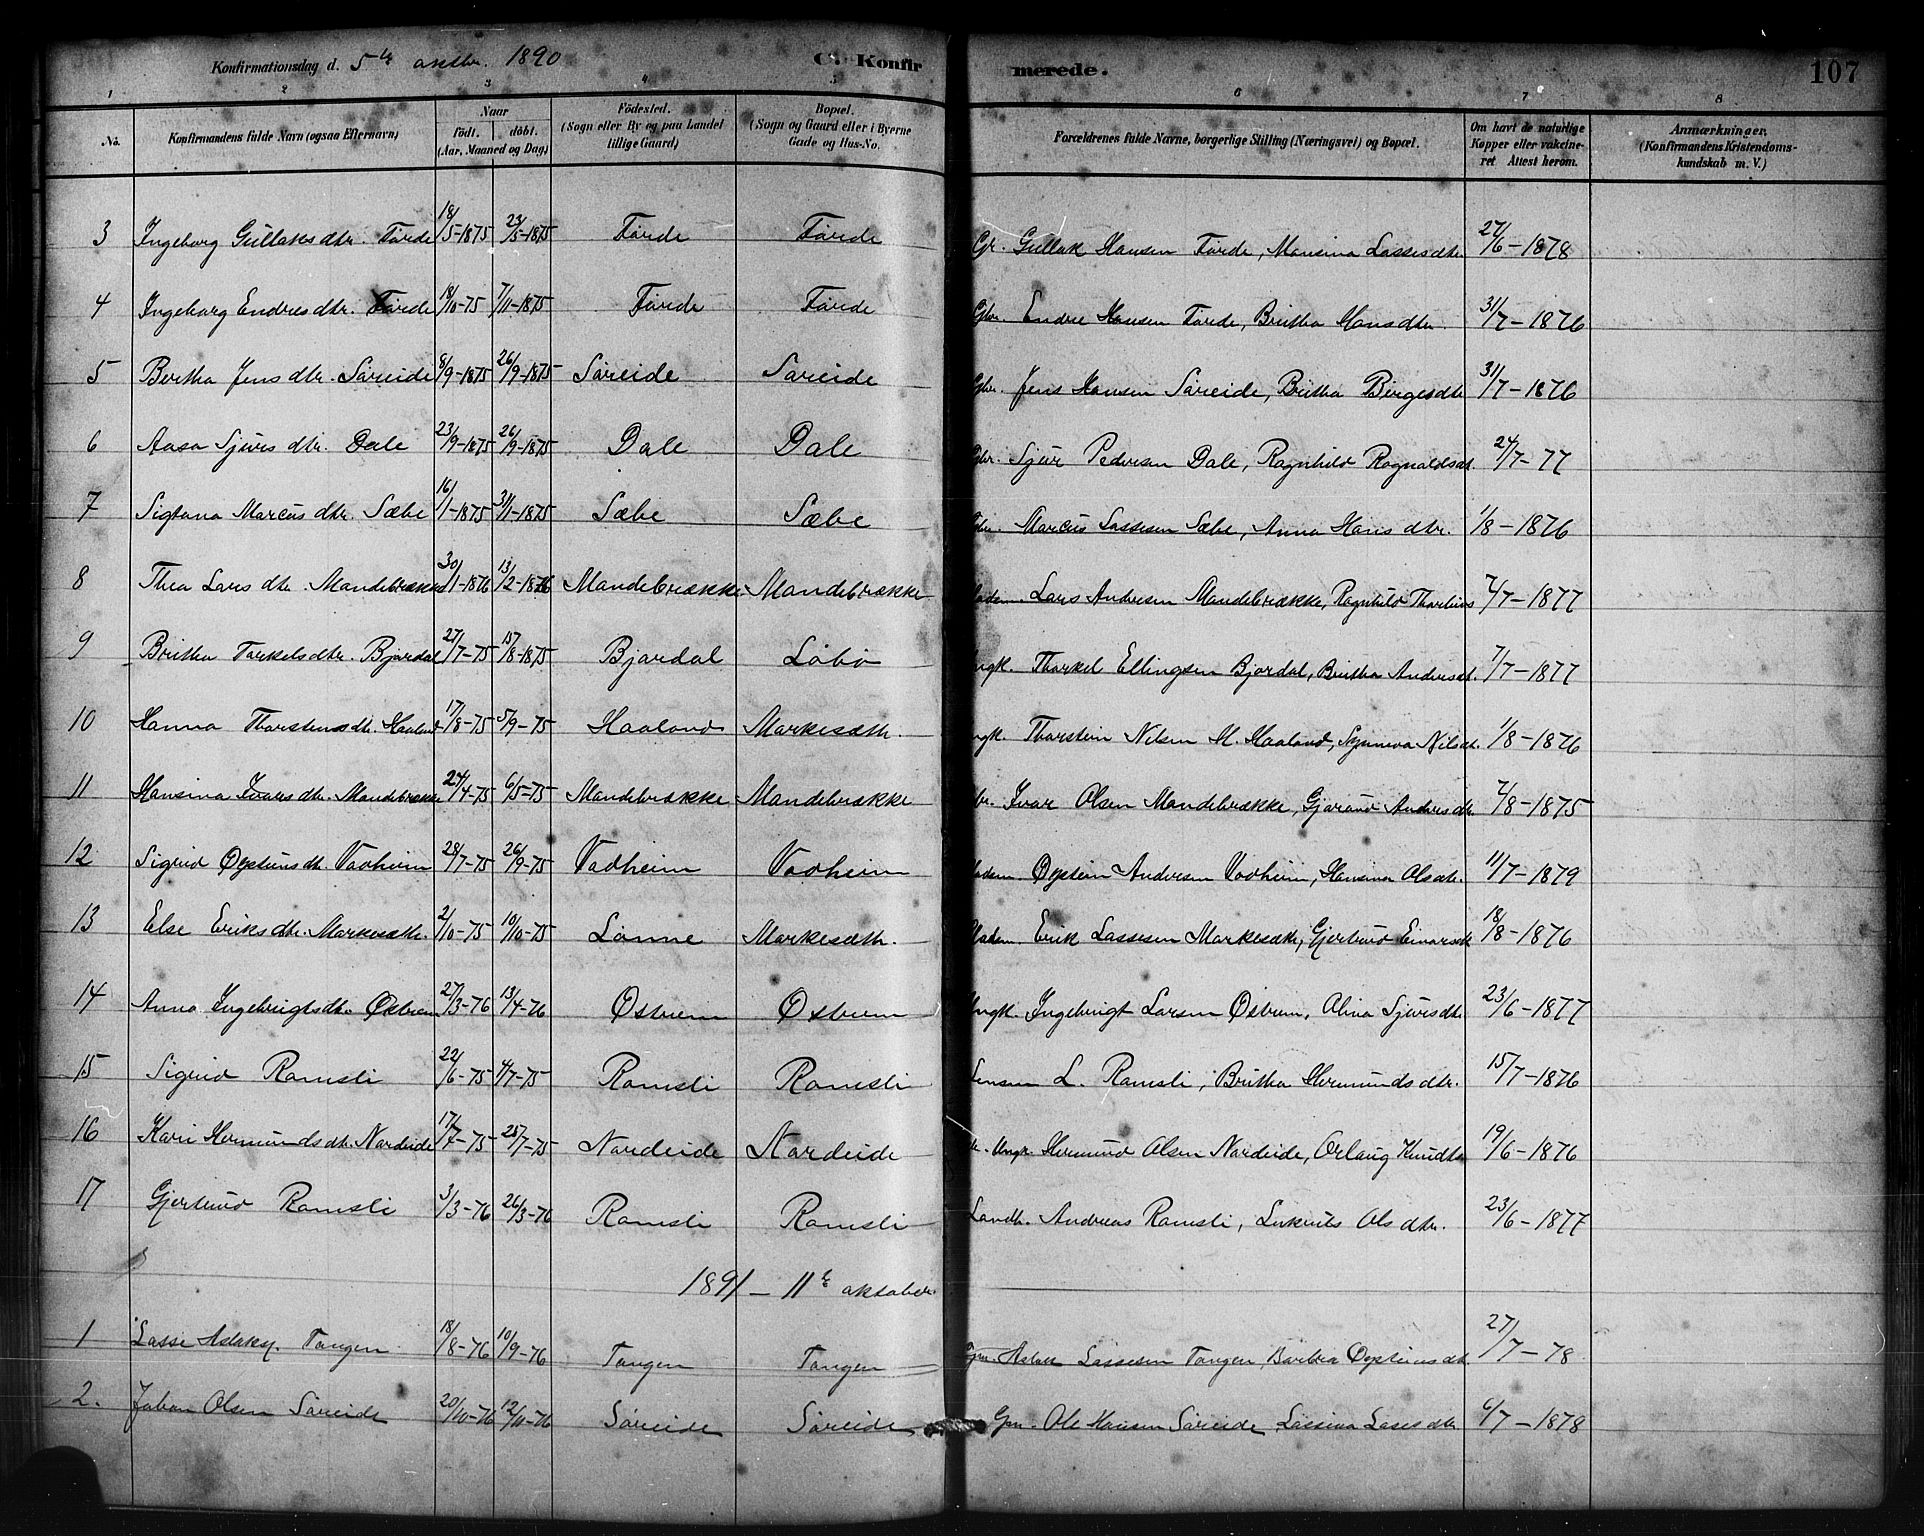 Konfirmationsdag d. 5te oktbr. 1890 C. Konfirmerede. 107
1 2 3 4 5 6 7 8
No. Konfirmandens fulde Navn (ogsaa Efternavn) Naar født. døbt. (Aar, Maaned og Dag) Födested. (Sogn eller By og paa Landet tillige Gaard) Bopæl. (Sogn og Gaard eller i Byerne Gade og Hus-No. Forældrenes fulde Navne, borgerlige Stilling (Næringsvei) og Bopæl. Om havt de naturlige Kopper eller vakcineret Attest herom. Anmærkninger. (Konfirmandens Kristendomskundskab m. V.)
3 Ingeborg Gullaksdtr. Førde 18/5-1875 23/5-1875 Førde Førde Gbr. Gullak Hansen Førde, Mansina Lassesdtr. 27/6-1878
4 Ingeborg Endresdtr. Førde 18/10-75 7/11-1875 Førde Førde Gbr. Endre Hansen Førde, Britha Hansdtr. 31/7-1876
5 Bertha Jensdtr. Søreide 8/9-1875 26/9-1875 Søreide Søreide Gbr. Jens Hansen Søreide, Britha Børgesdtr 31/7-1876
6 Aasa Sjursdtr. Dale 23/9-1875 26/9-1875 Dale Dale Gbr. Sjur Pedersen Dale, Ragnhild Ragnaldsdt. 24/7-77
7 Sigtona Marcusdtr. Sæbe 16/1-1875 31/1-1875 Sæbe Sæbe Gbr. Marcus Lassesen Sæbe, Anna Hansdtr. 1/8-1876
8 Thea Larsdtr. Mandebrække 30/1-1876 13/2-1876 Mandebrække Mandebrække Lars Andersen Mandebrække, Ragnhild 7/7-1877
9 Britha Torkelsdtr. Bjordal 27/7-75 15/8-1875 Bjordal Løbø Thorkel Ellingsen Bjordal, Britha Andersdt. 7/7-1877
10 Hanna Thorsteinsdtr. Haaland 17/8-75 5/9-75 Haaland Markesæth. Thorstein Nilsen M. Haaland, Synneva Nilsdt. 1/8-1876
11 Hansina Ivarsdtr. Mandebrække 24/4-75 6/5-75 Mandebrække Mandebrække Ivar Olsen Mandebrække, Gjørund Andersdtr. 7/8-1875
12 Sigrid Øysteinsdtr. Vadheim 28/7-75 26/9-75 Vadheim Vadheim Øystein Andersen Vadheim, Hansina Olsdtr. 11/7-1879
13 Else Eriksdtr. Markesæth. 2/10-75 10/10-75 Lønne Markesæth. Erik Lassesen Markesæth, Gjertrud Einarsdtr 18/8-1876
14 Anna Ingebrigtsdtr. Østrem 27/3-76 13/4-76 Østrem Østrem Ungk. Ingebrigt Larsen Østrem, Alina Sjursdtr. 23/6-1877
15 Sigrid Ramsli 22/6-75 4/7-75 Ramsli Ramsli L. Ramsli, Britha Hermundsdtr. 15/7-1876
16 Kari Hermundsdtr. Nordeide 17/7-75 25/7-75 Nordeide Nordeide Hermund Olsen Nordeide, Orlaug 19/6-1876
17 Gjertrud Ramsli 3/3-76 26/3-76 Ramsli Ramsli Landh. Andreas Ramsli, Olsdtr. 23/6-1877
1891 - 11te oktober
1 Lasse Aslaks. Tangen 18/8-76 10/9-76 Tangen Tangen Aslak Lassesen Tangen, Barbra Øysteinsdt. 27/7-78
2. Johan Olsen Søreide 20/10-76 12/11-76 Søreide Søreide Gm. Ole Hansen Søreide, Lassina Lasesdtr 6/7-1878